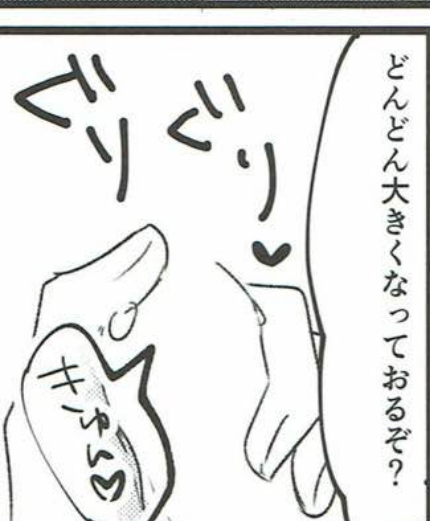 どんどん大きくなっておるぞ?
ぐり♥
ぐり
キュん♡